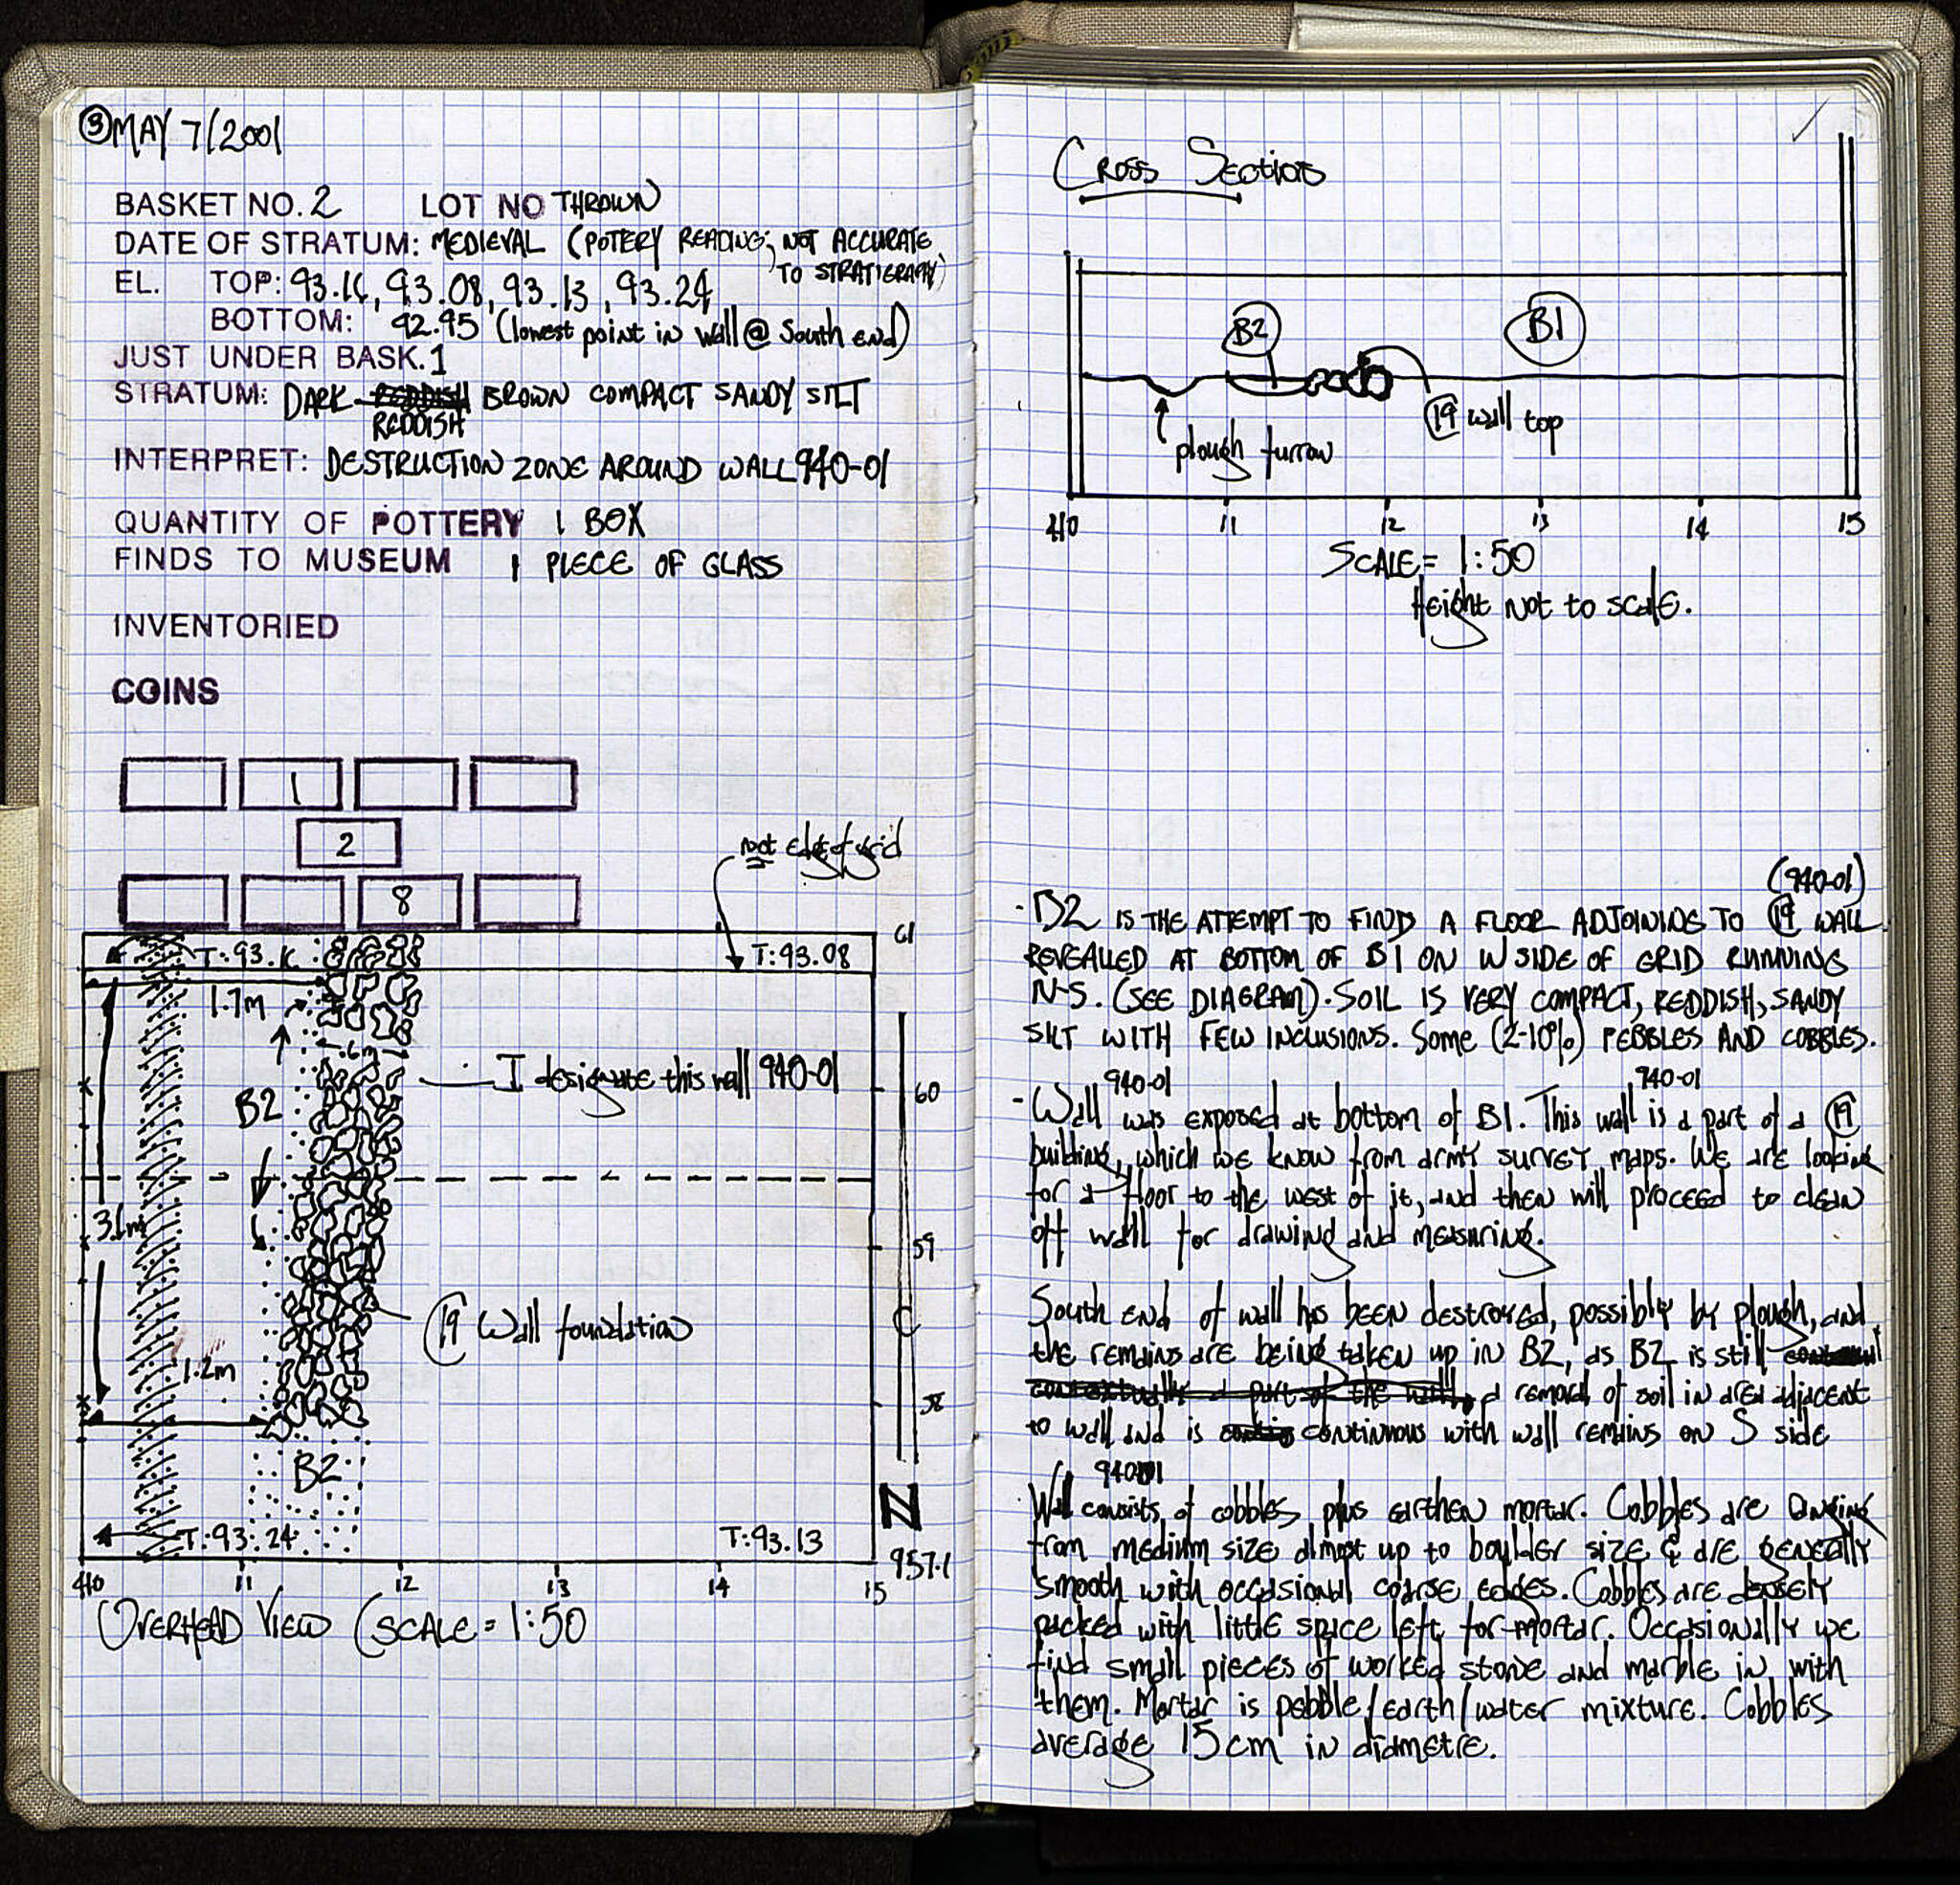 ③ MAY 7/2001
BASKET NO. 2 LOT NO THROWN
DATE OF STRATUM: MEDIEVAL (POTERY READING; NOT ACCURATE
TO STRATIGRAPHY)
EL. TOP: 93.16, 93.08, 93.13, 93.24
BOTTOM: 92.95 (lowest point in wall @ South end)
JUST UNDER BASK. 1
STRATUM: DARK REDDISH BROWN COMPACT SANDY SILT
REDDISH
INTERPRET: DESTRUCTION ZONE AROUND WALL 940-01
QUANTITY OF POTTERY 1 BOX
FINDS TO MUSEUM 1 PIECE OF GLASS
INVENTORIED
COINS
1
2
8
not edge of grid
61
T:93.16
T:93.08
1.7m
.6m
I designate this wall 940-01
60
B2
3.1m
59
C
19 Wall foundation
1.2m
58
B2
N
T:93.24
T:93.13
957.1
410 11 12 13 14 15
OVERHEAD VIEW (SCALE = 1:50
Cross Section
B2
B1
19 wall top
plough furrow
410 11 12 13 14 15
SCALE = 1:50
Height not to scale.
(940-01)
- B2 IS THE ATTEMPT TO FIND A FLOOR ADJOINING TO 19 WALL
REVEALED AT BOTTOM OF B1 ON W SIDE OF GRID RUNNING
N-S. (SEE DIAGRAM). SOIL IS VERY COMPACT, REDDISH, SANDY
SILT WITH FEW INCLUSIONS. Some (2-10%) PEBBLES AND COBBLES.
940-01 940-01
- Wall was exposed at bottom of B1. This wall is a part of a 19
building, which we know from army survey maps. We are looking
for a floor to the west of it, and then will proceed to clean
off wall for drawing and measuring.
South end of wall has been destroyed, possibly by plough, and
the remains are being taken up in B2, as B2 is still
contextually a part of the wall, a removal of soil in area adjacent
to wall and is continuous with wall remains on S side
940-01
Wall consists of cobbles plus earthen mortar. Cobbles are ranging
from medium size almost up to boulder size & are generally
smooth with occasional coarse edges. Cobbles are densely
packed with little space left for mortar. Occasionally we
find small pieces of worked stone and marble in with
them. Mortar is pebble/earth/water mixture. Cobbles
average 15cm in diametre.